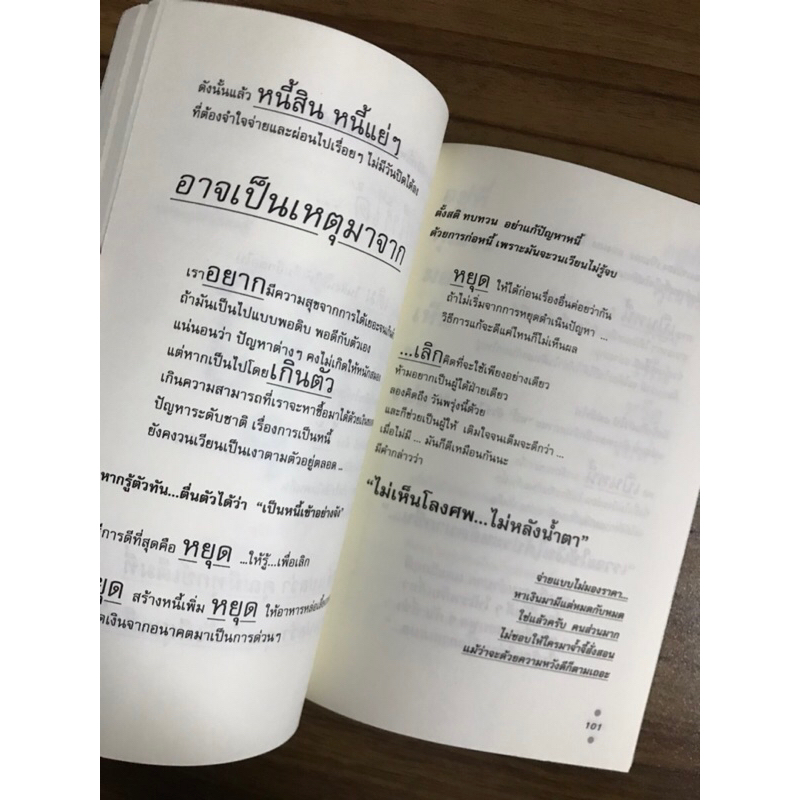 ดังนั้นแล้ว หนี้สิน หนี้แย่ๆ
ที่ต้องจำใจจ่ายและผ่อนไปเรื่อยๆ ไม่มีวันปิดได้ลง
อาจเป็นเหตุมาจาก
เราอยากมีความสุขจากการได้เยอะ
ถ้ามันเป็นไปแบบพอดิบ พอดีกับตัวเอง
แน่นอนว่า ปัญหาต่างๆ คงไม่เกิดให้หนัก
แต่หากเป็นไปโดยเกินตัว
เกินความสามารถที่เราจะหาซื้อมาได้ด้วย
ปัญหาระดับชาติ เรื่องการเป็นหนี้
ยังคงวนเวียนเป็นเงาตามตัวอยู่ตลอด ..
หากรู้ตัวทัน...ตื่นตัวได้ว่า “เป็นหนี้เข้าอย่างจัง”
การดีที่สุดคือ หยุด ...ให้รู้...เพื่อเลิก
สร้างหนี้เพิ่ม หยุด ให้อาหาร
เงินจากอนาคตมาเป็นการด่วนๆ
ตั้งสติ ทบทวน อย่าแก้ปัญหาหนี้
ด้วยการก่อหนี้ เพราะมันจะวนเวียนไม่รู้จบ
หยุด ให้ได้ก่อนเรื่องอื่นค่อยว่ากัน
ถ้าไม่เริ่มจากการหยุดดำเนินปัญหา ...
วิธีการแก้จะดีแค่ไหนก็ไม่เห็นผล
...เลิกคิดที่จะใช้เพียงอย่างเดียว
ห้ามอยากเป็นผู้ได้ฝ่ายเดียว
ลองคิดถึง วันพรุ่งนี้ด้วย
และก็ช่วยเป็นผู้ให้ เติมใจจนเต็มจะดีกว่า ...
เมื่อไม่มี ... มันก็ดีเหมือนกันนะ
มีคำกล่าวว่า
“ไม่เห็นโลงศพ...ไม่หลั่งน้ำตา”
จ่ายแบบไม่มองราคา...
หาเงินมามีแต่หมดกับหมด
ใช่แล้วครับ คนส่วนมาก
ไม่ชอบให้ใครมาจ้ำจี้สั่งสอน
แม้ว่าจะด้วยความหวังดีก็ตามเถอะ
101